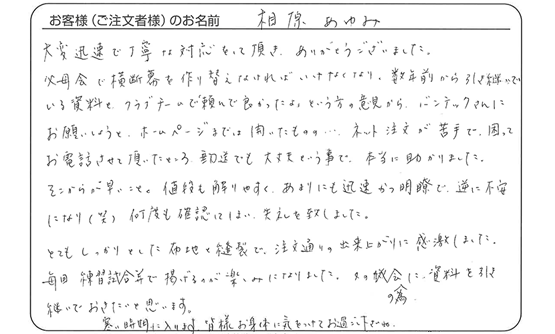 お客様(ご注文者様)のお名前 相原 あゆみ
大変迅速で丁寧な対応をして頂き、ありがとうございました。
父母会で横断幕を作り替えなければいけなくなり、数年前から引き継いで
いる資料と、クラブチームで頼んで良かったよ、という方の意見から、バンテックさんに
お願いしようと、ホームページまでは開いたものの…、ネット注文が苦手で、困って
お電話させて頂いたところ、郵送でも大丈夫という事で、本当に助かりました。
そこからが早いこと、値段も解りやすく、あまりにも迅速かつ明瞭で、逆に不安
になり(笑) 何度も確認してしまい、失礼を致しました。
とても しっかりとした布地と縫製で、注文通りの出来上がりに感激しました。
毎回 練習試合等で掲げるのが楽しみになりました。次の の為に、資料を引き
継いでおきたいと思います。
寒い時期に入ります、皆様お身体に気をつけてお過ごし下さい。